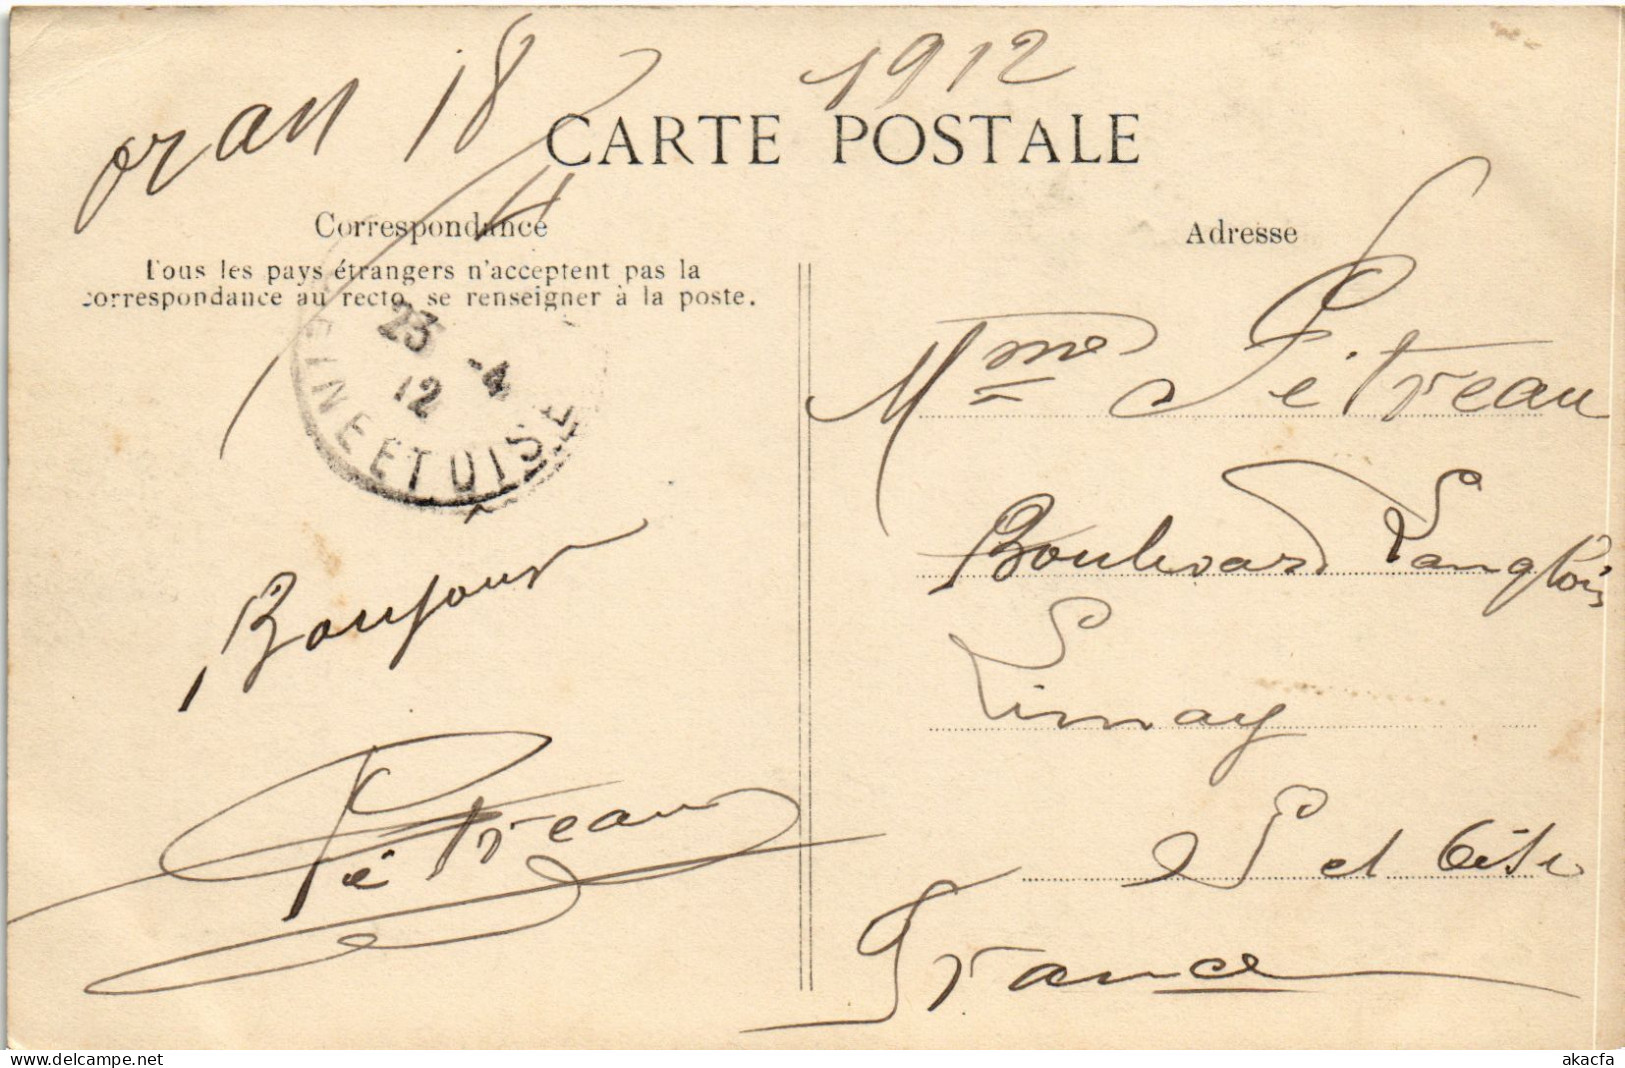 oran 18/4 1912
CARTE POSTALE
Correspondance
Tous les pays étrangers n'acceptent pas la
correspondance au recto, se renseigner à la poste.
Adresse
23 -4
12
SEINE ET OISE
Bonjour
Pétreau
Mme Pétreau
Boulevard Langlois
Limay
S et Oise
France
akacfa
delcampe.net